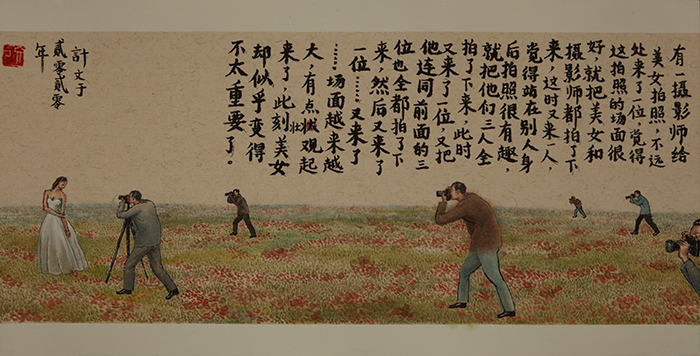 有一摄影师给
美女拍照，不远
处来了一位，觉得
这拍照的场面很
好，就把美女和
摄影师都拍了下
来，这时又来一人，
觉得站在别人身
后拍照很有趣，
就把他们三人全
拍了下来，此时
又来了一位，又把
他连同前面的三
位也全都拍了下
来，然后又来了
一位……又来了
……场面越来越
大，有点壮观起
来了，此刻美女
却似乎变得
不太重要了。
計文于
貳零貳零
年